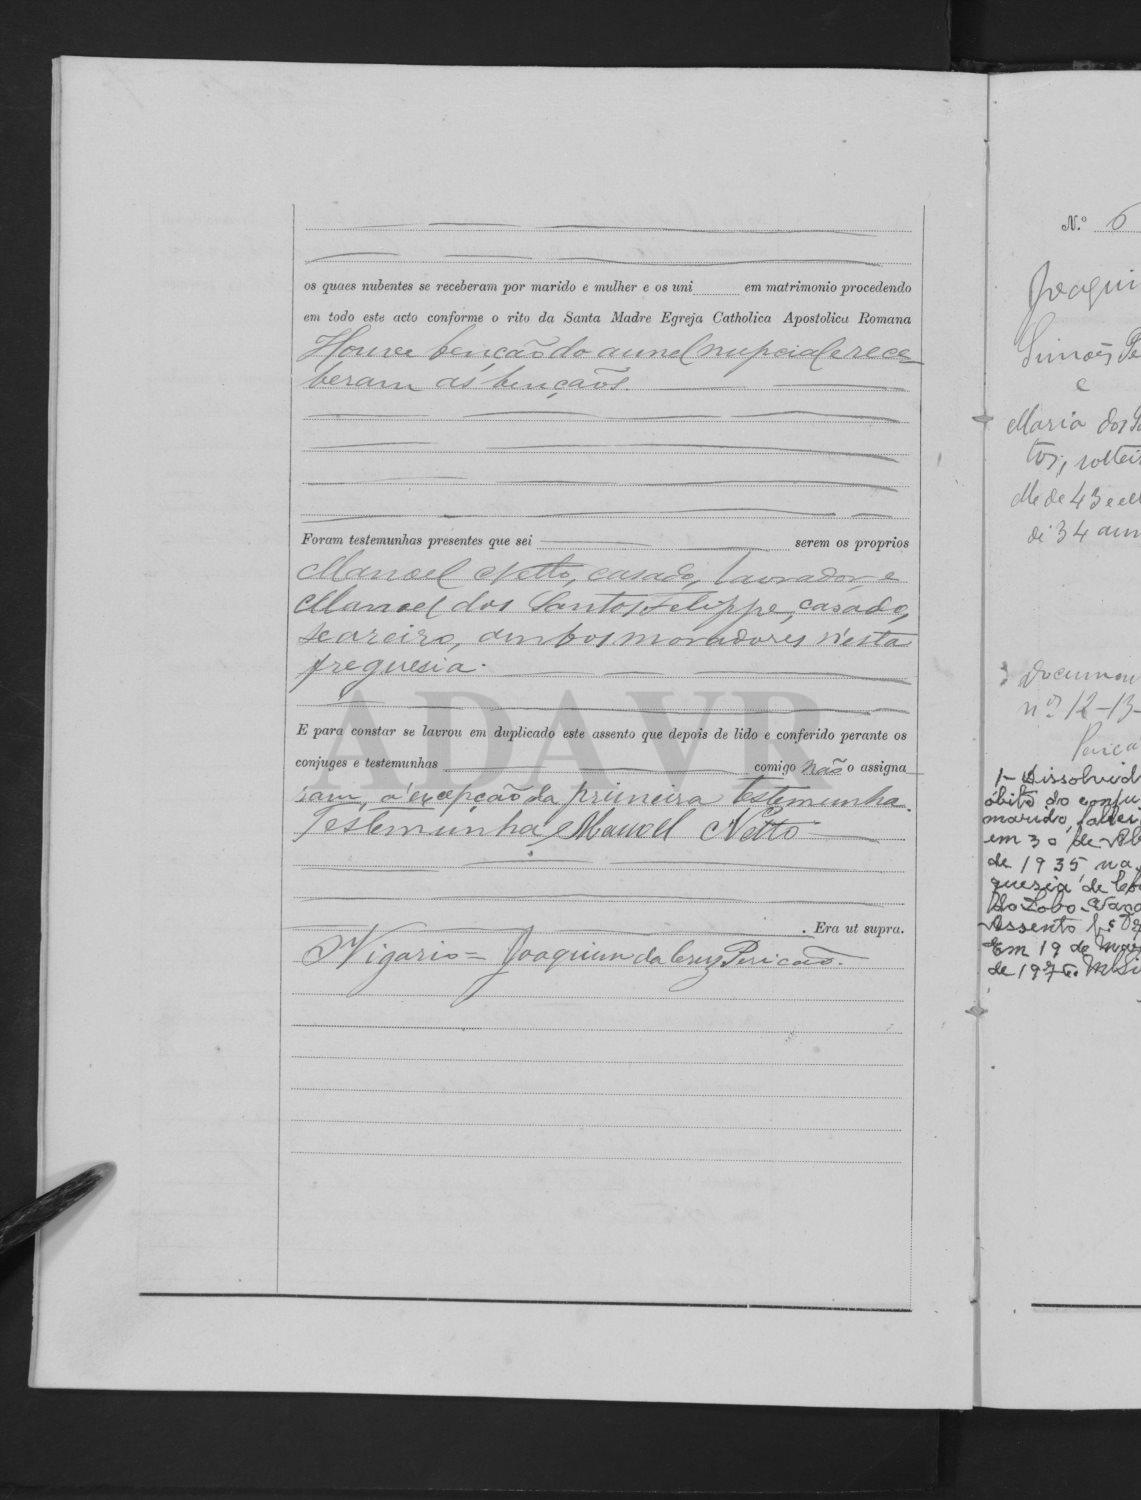 os quaes nubentes se receberam por marido e mulher e os uni em matrimonio procedendo
em todo este acto conforme o rito da Santa Madre Egreja Catholica Apostolica Romana
Houve benção do annel nupcial e rece-
beram as bençãos.
Foram testemunhas presentes que sei serem os proprios
Manoel Netto, casado, lavrador e
Manoel dos Santos Felippe, casado,
seareiro, ambos moradores n'esta
freguesia.
ADAVR
E para constar se lavrou em duplicado este assento que depois de lido e conferido perante os
conjuges e testemunhas comigo não o assigna
ram, á excepção da primeira testemunha.
Testemunha, Manoel Netto
. Era ut supra.
Vigario = Joaquim da Cruz Pericão.
N.º 6
Joaqui
Simões Pe
e
Maria dos Sa
tos, soltei
elle de 43 e ell
de 34 ann
Documen
nos 12-13-
Perica
1- Dissolvid
óbito do conju
marido, falleci
em 30 de Ab
de 1935 na
guezia de
do Lobo-
Assento n.º
Em 19 de
de 1976.